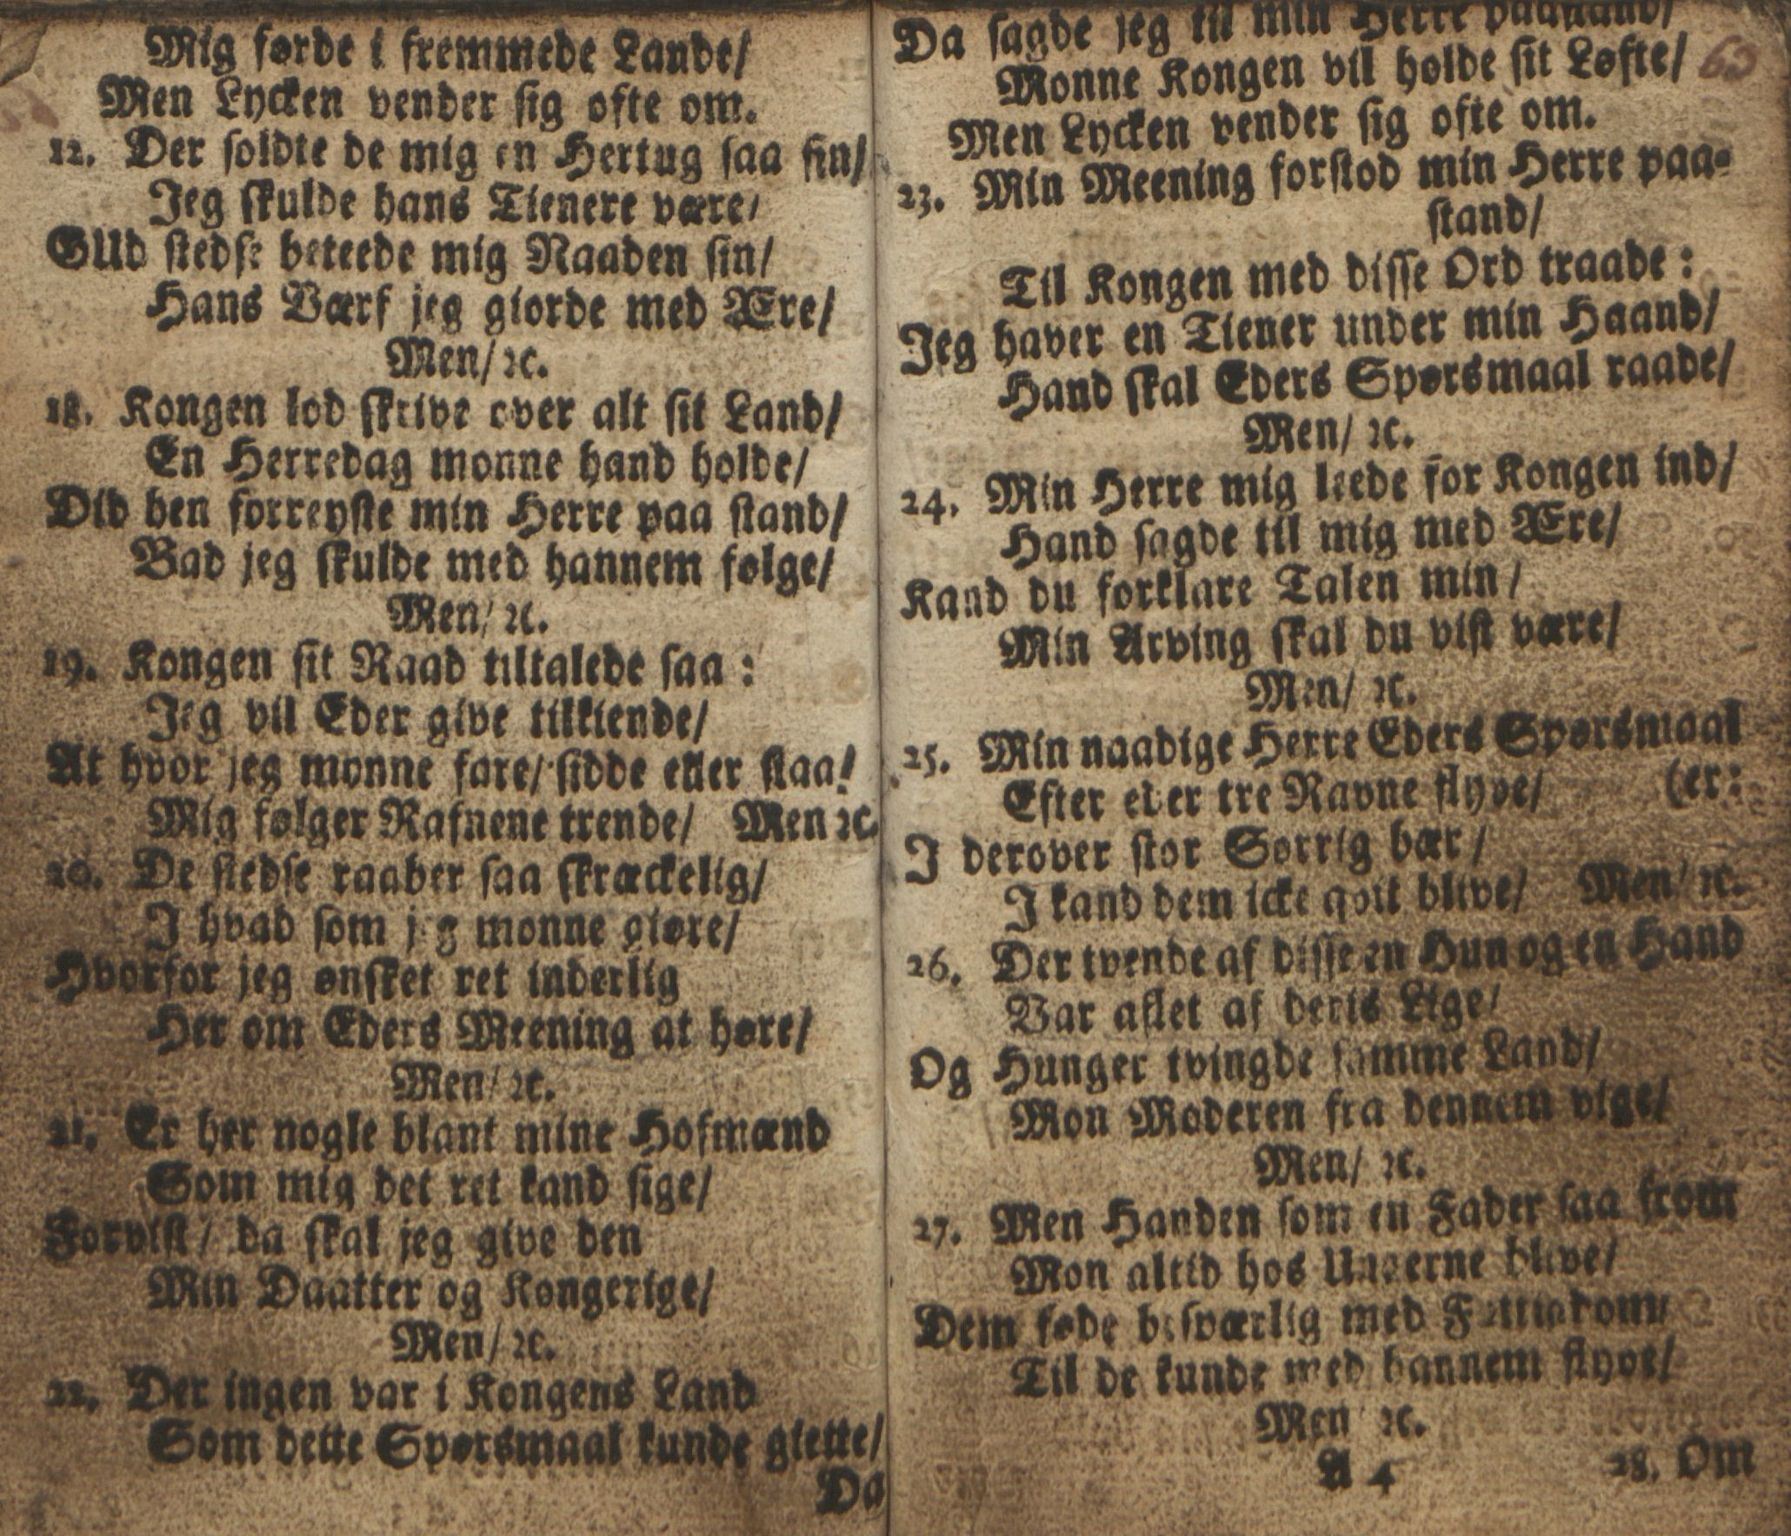 Mig førde i fremmede Lande/
Men Lycken vender sig ofte om.
12. Der soldte de mig en Hertug saa fin/
Jeg skulde hans Tienere være/
GUd stedse beteede mig Naaden sin/
Hans Værf jeg giorde med Ære/
Men/ ꝛc.
18. Kongen lod skrive over alt sit Land/
En Herredag monne hand holde/
Did hen forreyste min Herre paa stand/
Bad jeg skulde med hannem følge/
Men/ ꝛc.
19. Kongen sit Raad tiltalede saa:
Jeg vil Eder give tilkiende/
At hvor jeg monne fare/ sidde eller staa/
Mig følger Rafnene trende/ Men ꝛc.
20. De stedse raaber saa skræckelig/
I hvad som jeg monne giøre/
Hvorfor jeg ønsket ret inderlig
Her om Eders Meening at høre/
Men/ ꝛc.
21. Er her nogle blant mine Hofmænd
Som mig det ret kand sige/
Forvist/ da skal jeg give den
Min Daatter og Kongerige/
Men/ ꝛc.
22. Der ingen var i Kongens Land
Som dette Spørsmaal kunde giette/
Da
Da sagde jeg til min Herre paastand/
Monne Kongen vil holde sit Løfte/
63
Men Lycken vender sig ofte om.
23. Min Meening forstod min Herre paa-
stand/
Til Kongen med disse Ord traade:
Jeg haver en Tiener under min Haand/
Hand skal Eders Spørsmaal raade/
Men/ ꝛc.
24. Min Herre mig leede for Kongen ind/
Hand sagde til mig med Ære/
Kand du forklare Talen min/
Min Arving skal du vist være/
Men/ ꝛc.
25. Min naadige Herre Eders Spørsmaal
Efter eder tre Ravne flyve/ (er:
I derover stor Sorrig bær/
I kand dem icke qvit blive/ Men/ ꝛc.
26. Der tvende af disse en Hun og en Hand
Var aflet af deris Lige/
Og Hunger tvingde samme Land/
Mon Moderen fra dennem vige/
Men/ ꝛc.
27. Men Handen som en Fader saa from
Mon altid hos Ungerne blive/
Dem føde besværlig med Fattigdom/
Til de kunde med hannem flyve/
Men ꝛc.
A 4 28. Om